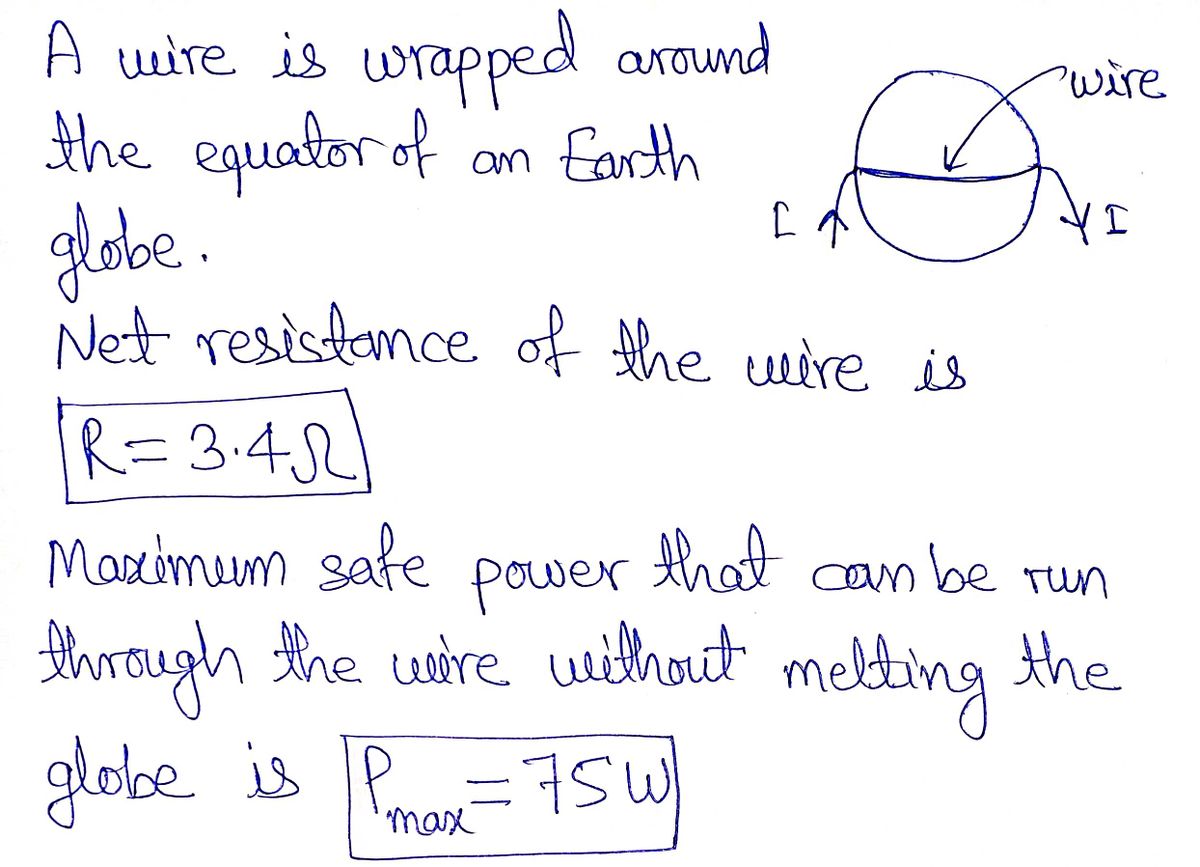 A wire is wrapped around
the equator of an Earth
globe.
wire
I
I
Net resistance of the wire is
R = 3.4Ω
Maximum safe power that can be run
through the wire without melting the
globe is Pmax = 75W